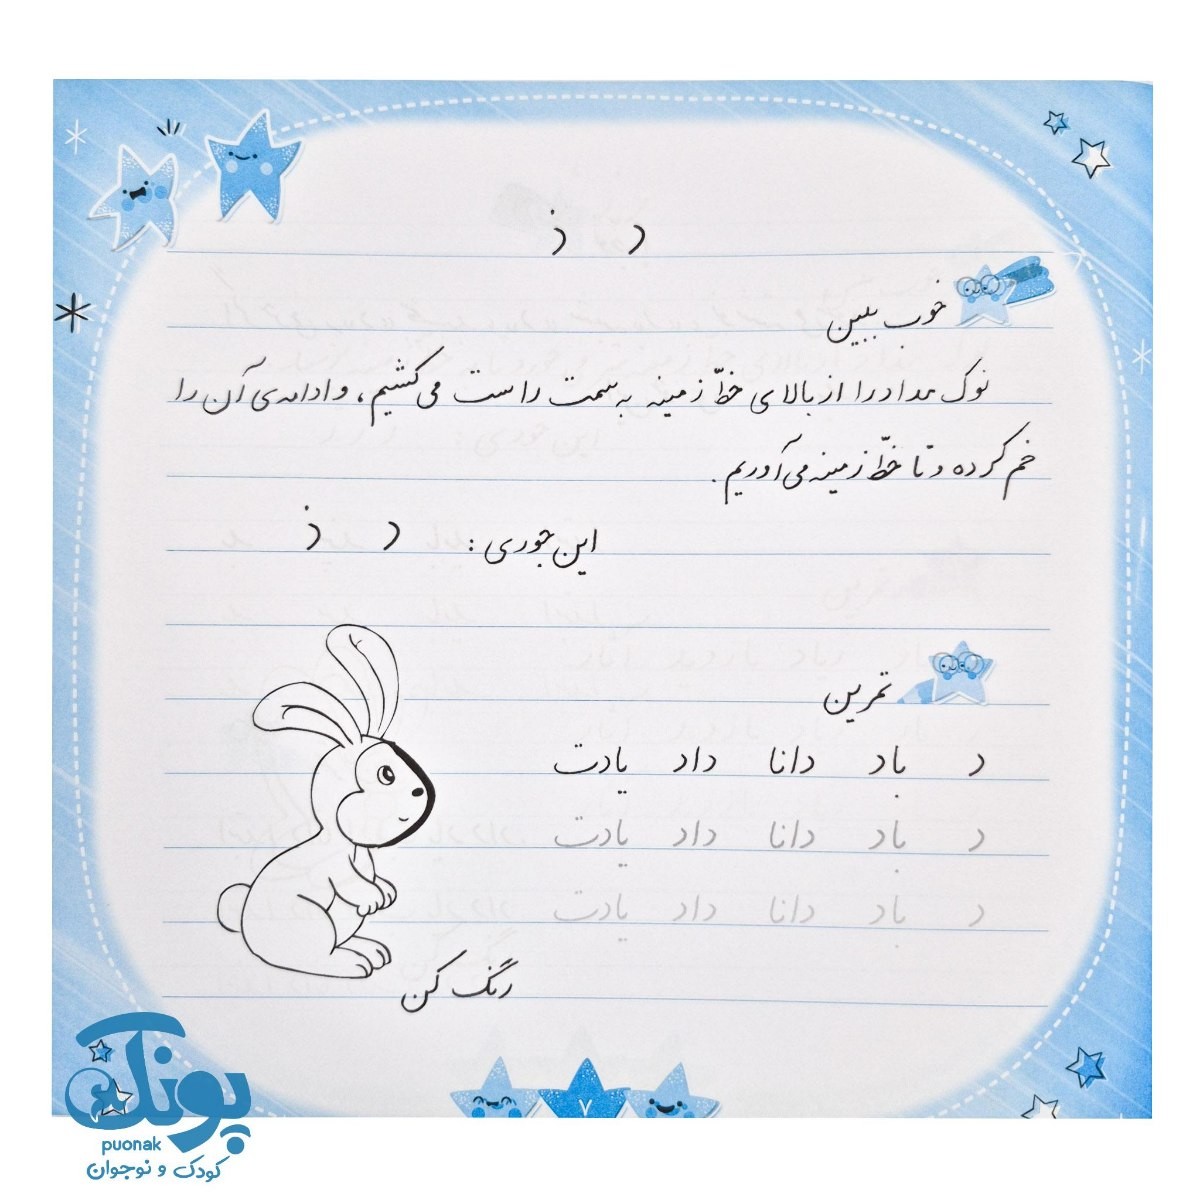 د ذ
خوب ببین
نوک مداد را از بالای خطّ زمینه به سمت راست می‌کشیم، و ادامه‌ی آن را
خم کرده و تا خطّ زمینه می‌آوریم.
این جوری : د ذ
تمرین
د باد دانا داد یادت
د باد دانا داد یادت
د باد دانا داد یادت
رنگ کن
۷
پونک
puonak
کودک و نوجوان